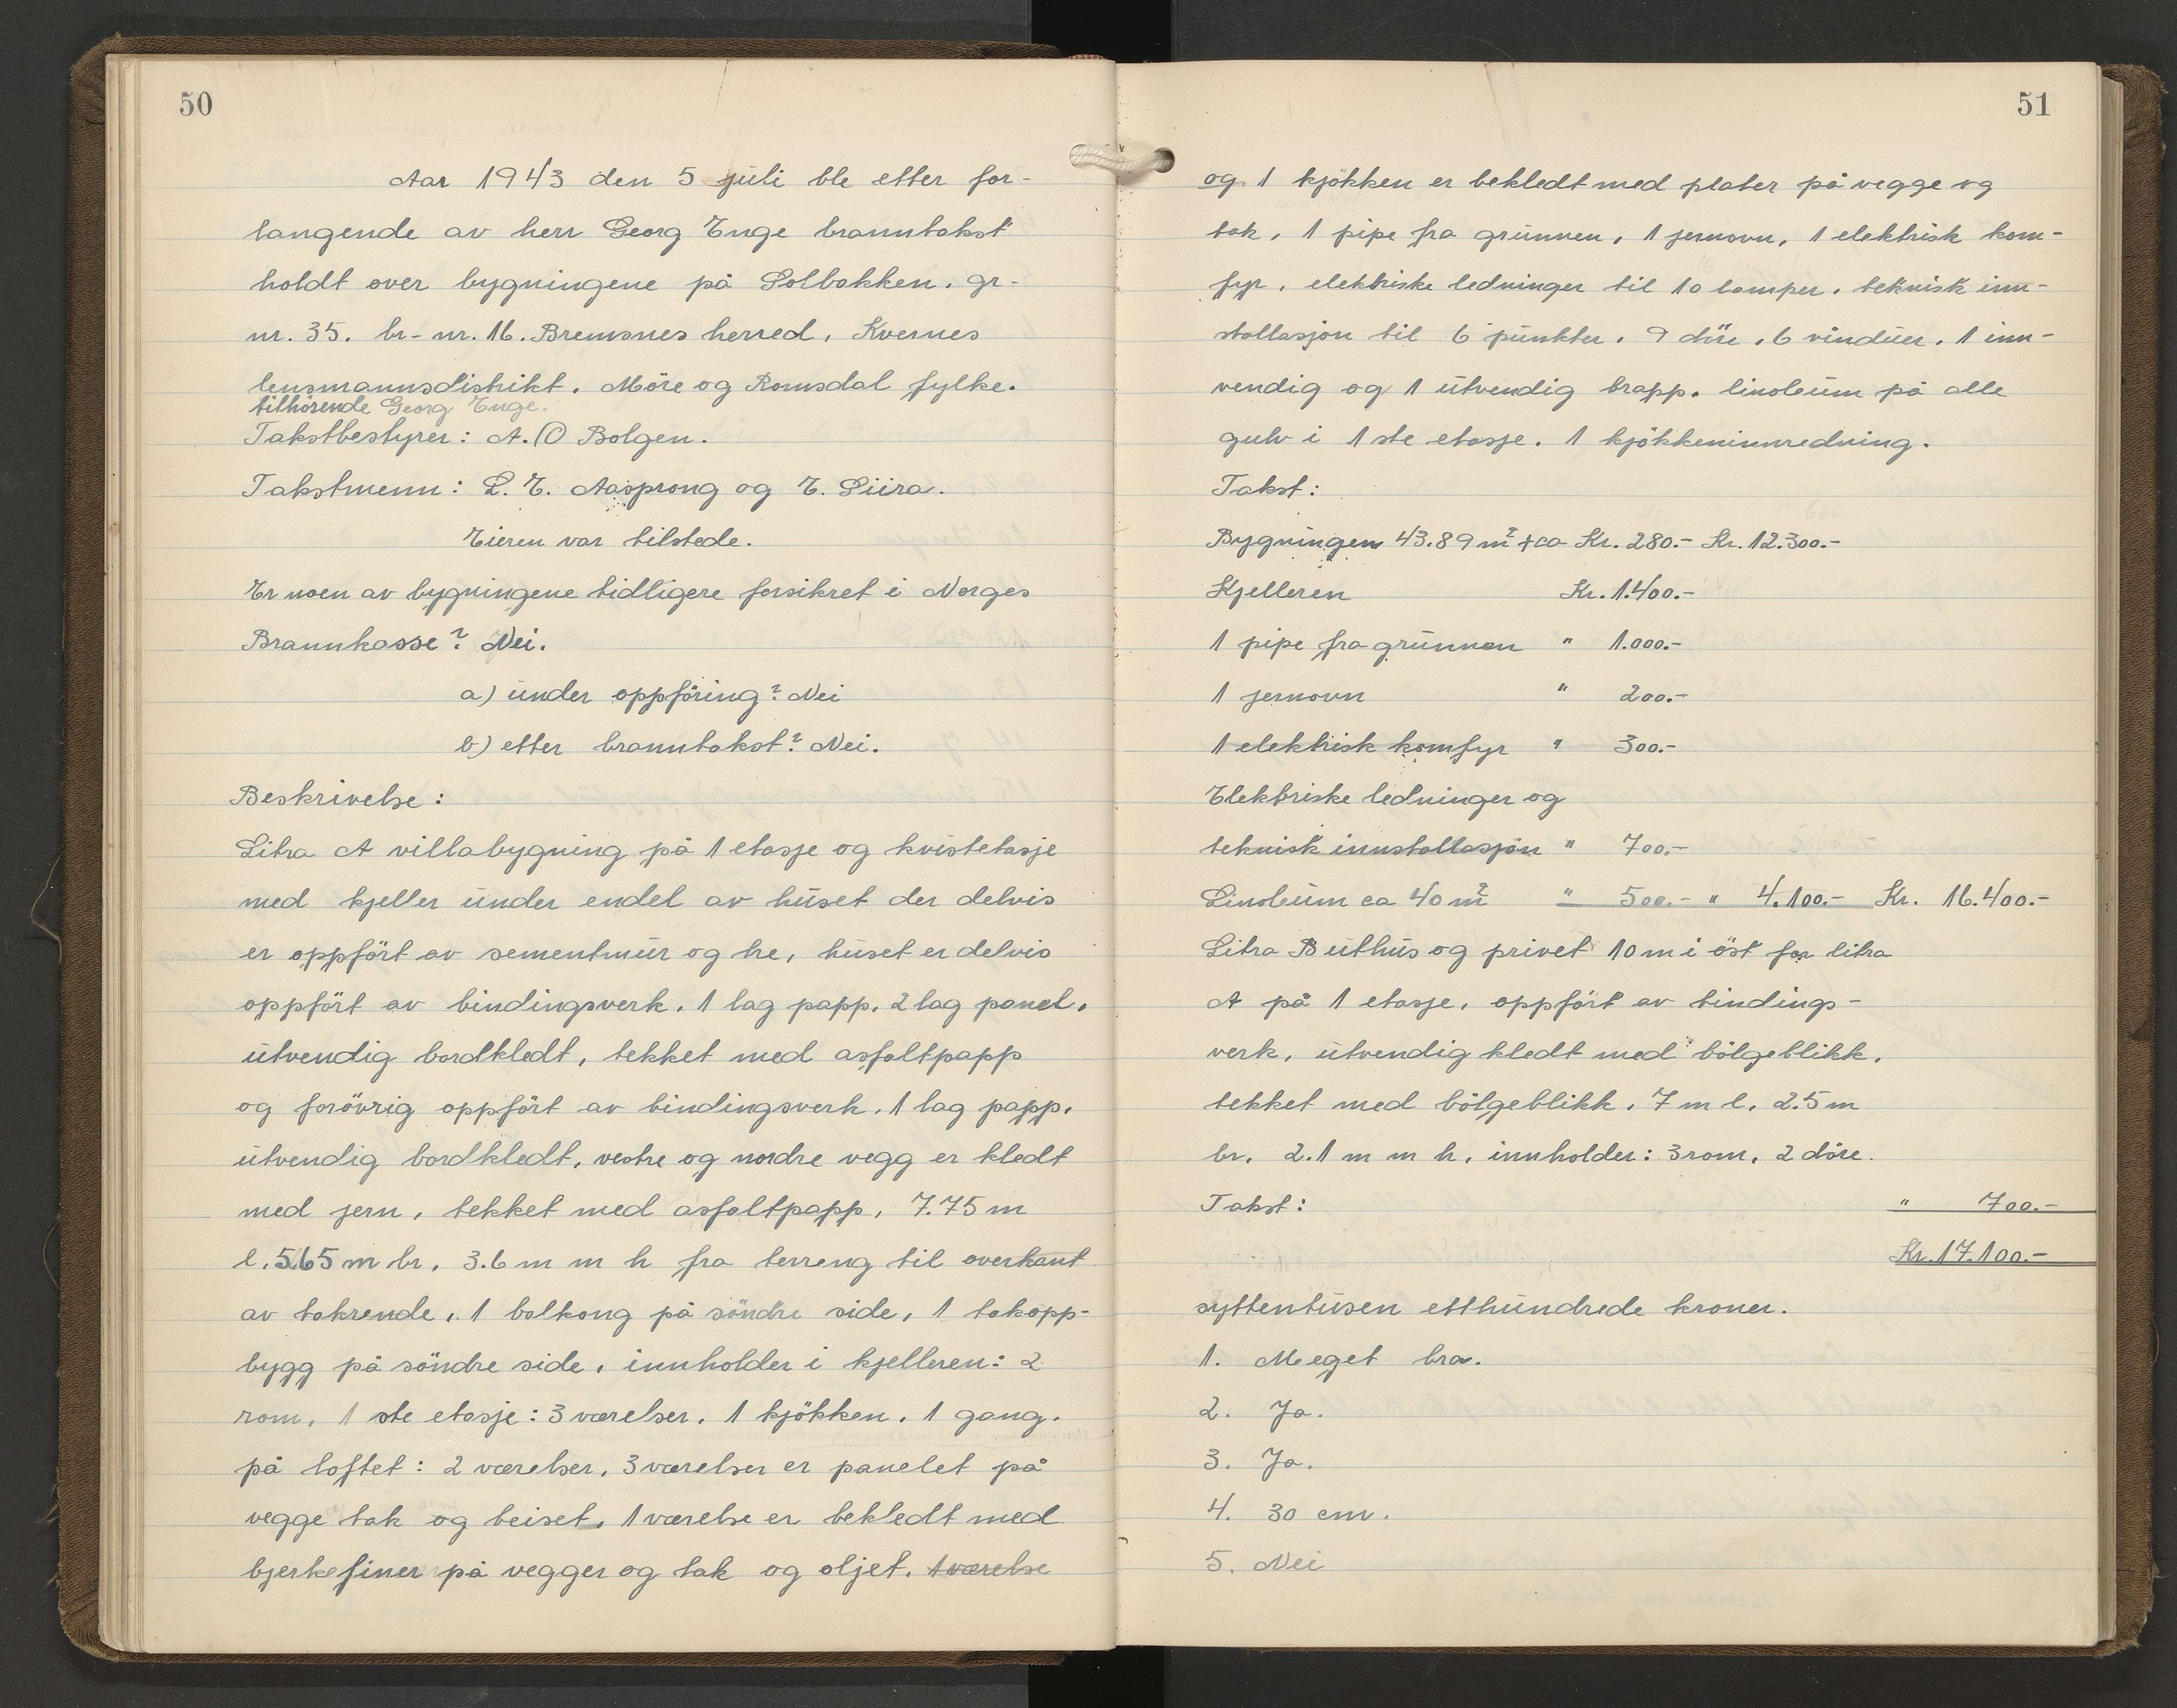 50
Aar 1943 den 5 juli ble etter for-
langende av herr Georg Enge branntakst
holdt over bygningene på Solbakken, gr-
nr. 35. br-nr. 16. Bremsnes herred, Kvernes
lensmannsdistrikt. Möre og Romsdal fylke.
tilhörende Georg Enge.
Takstbestyrer: A. O Bolgen.
Takstmenn: L. E. Aasprong og E. Siira.
Eieren var tilstede.
Er noen av bygningene tidligere forsikret i Norges
Brannkasse? Nei.
a) under oppföring? Nei
b) etter branntakst? Nei.
Beskrivelse:
Litra A villabygning på 1 etasje og kvistetasje
med kjeller under endel av huset der delvis
er oppfört av sementmur og tre, huset er delvis
oppfört av bindingsverk, 1 lag papp, 2 lag panel,
utvendig bordkledt, tekket med asfaltpapp
og forövrig oppfört av bindingsverk, 1 lag papp,
utvendig bordkledt, vestre og nordre vegg er kledt
med jern, tekket med asfaltpapp, 7.75 m
l, 5.65 m br, 3.6 m m h fra terreng til overkant
av takrende, 1 balkong på söndre side, 1 takopp-
bygg på söndre side, innholder i kjelleren: 2
rom, 1 ste etasje: 3 værelser, 1 kjökken, 1 gang.
på loftet: 2 værelser, 3 værelser er panelet på
vegge tak og beiset, 1 værelse er bekledt med
bjerkefiner på vegger og tak og oljet. 1 værelse
51
og 1 kjökken er bekledt med plater på vegge og
tak, 1 pipe fra grunnen, 1 jernovn, 1 elektrisk kom-
fyr, elektriske ledninger til 10 lamper, teknisk inn-
stallasjon til 6 punkter, 9 döre, 6 vinduer, 1 inn-
vendig og 1 utvendig trapp. linoleum på alle
gulv i 1 ste etasje. 1 kjökkeninnredning.
Takst:
Bygningen 43.89 m² + ca Kr. 280.- Kr. 12.300.-
Kjelleren Kr. 1.400.-
1 pipe fra grunnen " 1.000.-
1 jernovn " 200.-
1 elektrisk komfyr " 300.-
Elektriske ledninger og
teknisk innstallasjon " 700.-
Linoleum ca 40 m² " 500.- " 4.100.- Kr. 16.400.-
Litra B uthus og privet 10 m i öst for litra
A på 1 etasje, oppfört av bindings-
verk, utvendig kledt med bölgeblikk,
tekket med bölgeblikk, 7 m l, 2.5 m
br, 2.1 m m h, innholder: 3 rom, 2 döre.
Takst: " 700.-
Kr. 17.100.-
syttentusen etthundrede kroner.
1. Meget bra.
2. Ja.
3. Ja.
4. 30 cm.
5. Nei